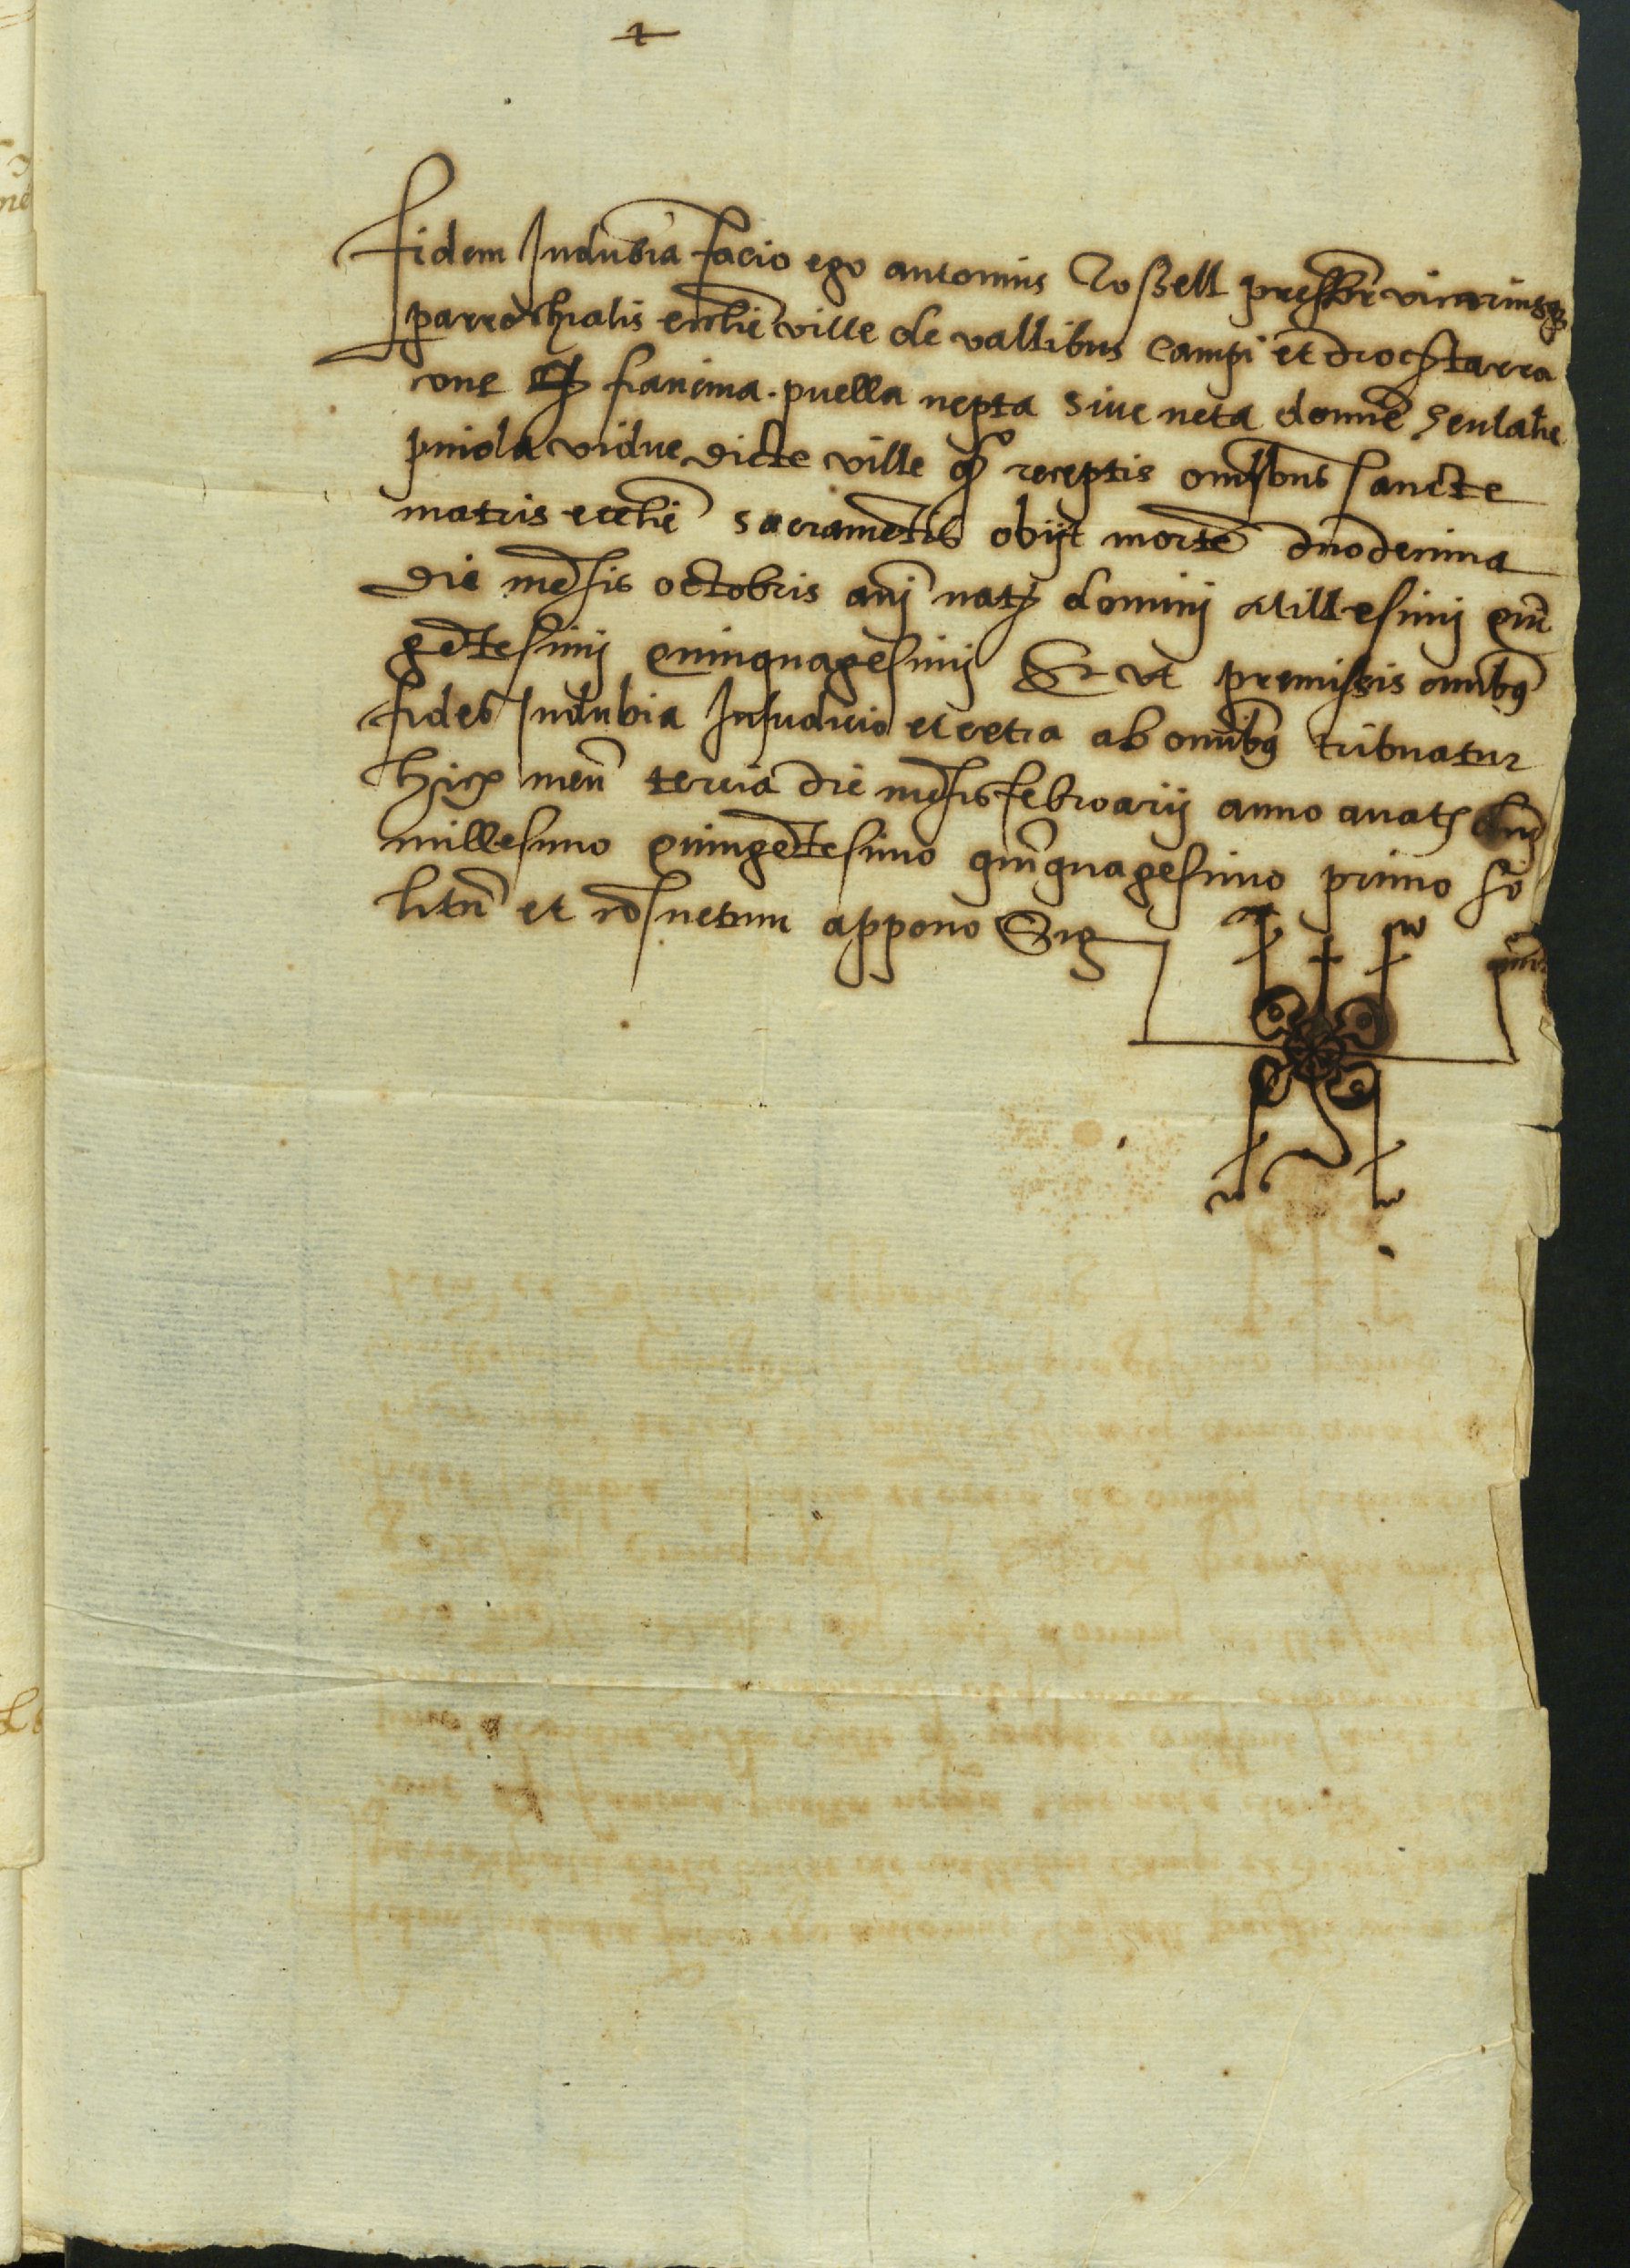 fidem Indubia facio ego antonius Rossell presbr vicariusq
parrochialis ecclie ville de vallibus campi et dioc tarra
one francina puella nepta sive neta donne Eulalie
puiola vidue dicte ville q receptis omibus sancte
matris ecclie sacrametis obijt morte duodecima
die mesis octobris ani nat domini Millesimi quin
getesimi quinquagesimi Et ut premissis omibus
fides Indubia In Iudicio et extra ab omibus tribuatur
hic meu tercia die mesis febroarij anno a nat dni
millesimo quingetesimo quinquagesimo primo so
litu et cosuetum appono Sig num